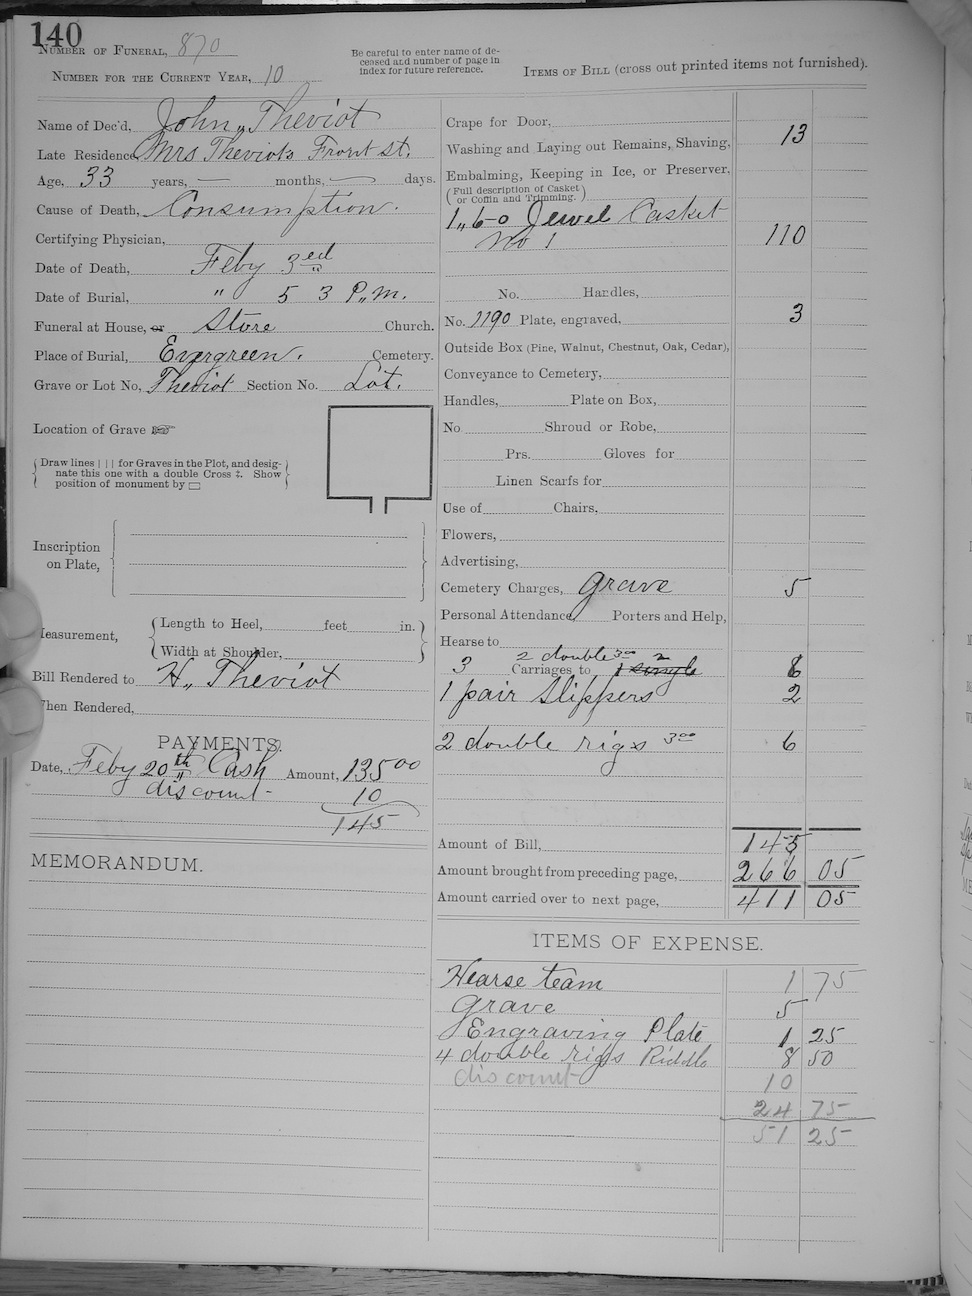 140
NUMBER OF FUNERAL, 870
NUMBER FOR THE CURRENT YEAR, 10
Be careful to enter name of de-
ceased and number of page in
index for future reference.
ITEMS OF BILL (cross out printed items not furnished).
Name of Dec'd, John Theviot
Late Residence Mrs Theviots Front st.
Age, 33 years, — months, — days.
Cause of Death, Consumption.
Certifying Physician,
Date of Death, Feby 3ed
Date of Burial, " 5 3 P.m.
Funeral at House, or Store Church.
Place of Burial, Evergreen. Cemetery.
Grave or Lot No, Theviot Section No. Lot.
Location of Grave ☞
Draw lines | | | for Graves in the Plot, and desig-
nate this one with a double Cross ‡. Show
position of monument by ▭
Inscription
on Plate,
Measurement,
Length to Heel, feet in.
Width at Shoulder,
Bill Rendered to H. Theviot
When Rendered,
PAYMENTS.
Date, Feby 20th Cash Amount, 135 00
discount - 10
145
MEMORANDUM.
Crape for Door,
Washing and Laying out Remains, Shaving, 13
Embalming, Keeping in Ice, or Preserver,
(Full description of Casket
or Coffin and Trimming.)
1,, 6-0 Jewel Casket
No 1 110
No. Handles,
No. 1190 Plate, engraved, 3
Outside Box (Pine, Walnut, Chestnut, Oak, Cedar),
Conveyance to Cemetery,
Handles, Plate on Box,
No Shroud or Robe,
Prs. Gloves for
Linen Scarfs for
Use of Chairs,
Flowers,
Advertising,
Cemetery Charges, grave 5
Personal Attendance, Porters and Help,
Hearse to
2 double 300 2
3 Carriages to 1 single 6
1 pair Slippers 2
2 double rigs 3 00 6
Amount of Bill, 145
Amount brought from preceding page, 266 05
Amount carried over to next page, 411 05
ITEMS OF EXPENSE.
Hearse team 1 75
Grave 5
Engraving Plate 1 25
4 double rigs Riddle 8 50
discount 10
24 75
51 25